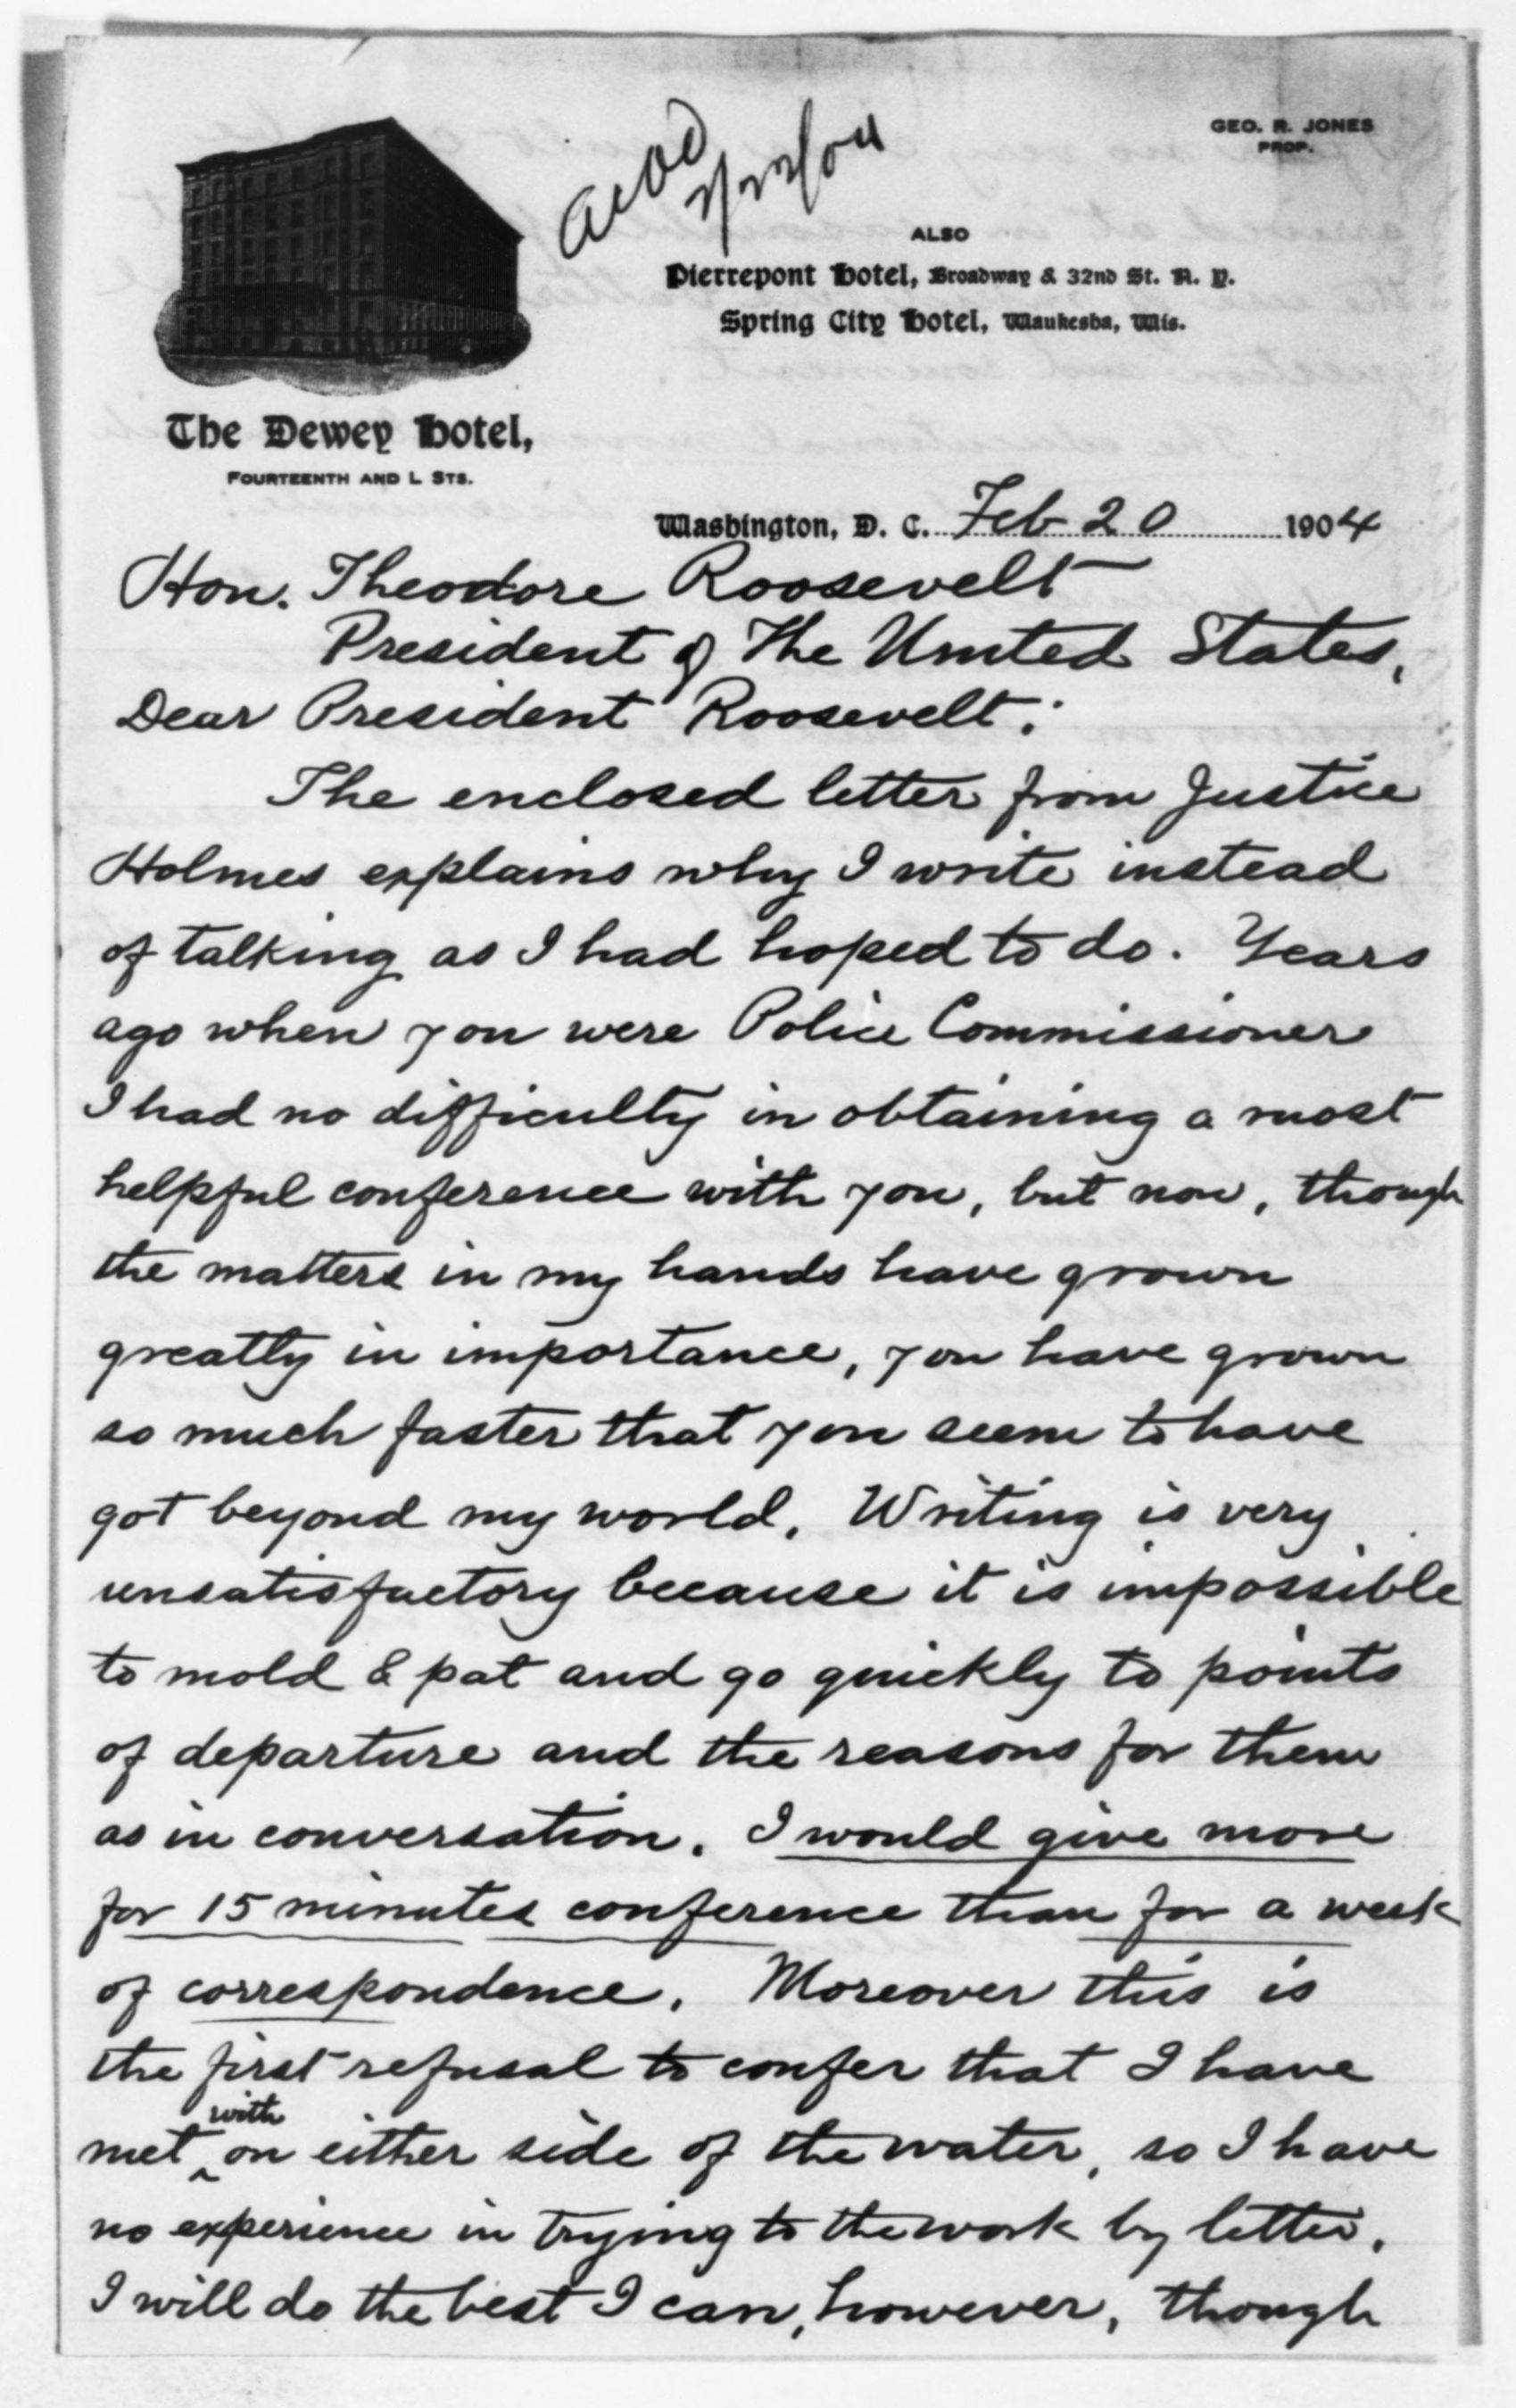 GEO. R. JONES
PROP.
ackd
ALSO
Pierrepont Hotel, Broadway & 32nd St. N. Y.
Spring City Hotel, Waukesha, Wis.
The Dewey Hotel,
FOURTEENTH AND L STS.
Washington, D. C. Feb 20 1904
Hon. Theodore Roosevelt
President of The United States,
Dear President Roosevelt:
The enclosed letter from Justice
Holmes explains why I write instead
of talking as I had hoped to do. Years
ago when you were Police Commissioner
I had no difficulty in obtaining a most
helpful conference with you, but now, though
the matters in my hands have grown
greatly in importance, you have grown
so much faster that you seem to have
got beyond my world. Writing is very
unsatisfactory because it is impossible
to mold & pat and go quickly to points
of departure and the reasons for them
as in conversation. I would give more
for 15 minutes conference than for a week
of correspondence. Moreover this is
the first refusal to confer that I have
met with on either side of the water, so I have
no experience in trying to the work by letter.
I will do the best I can, however, though